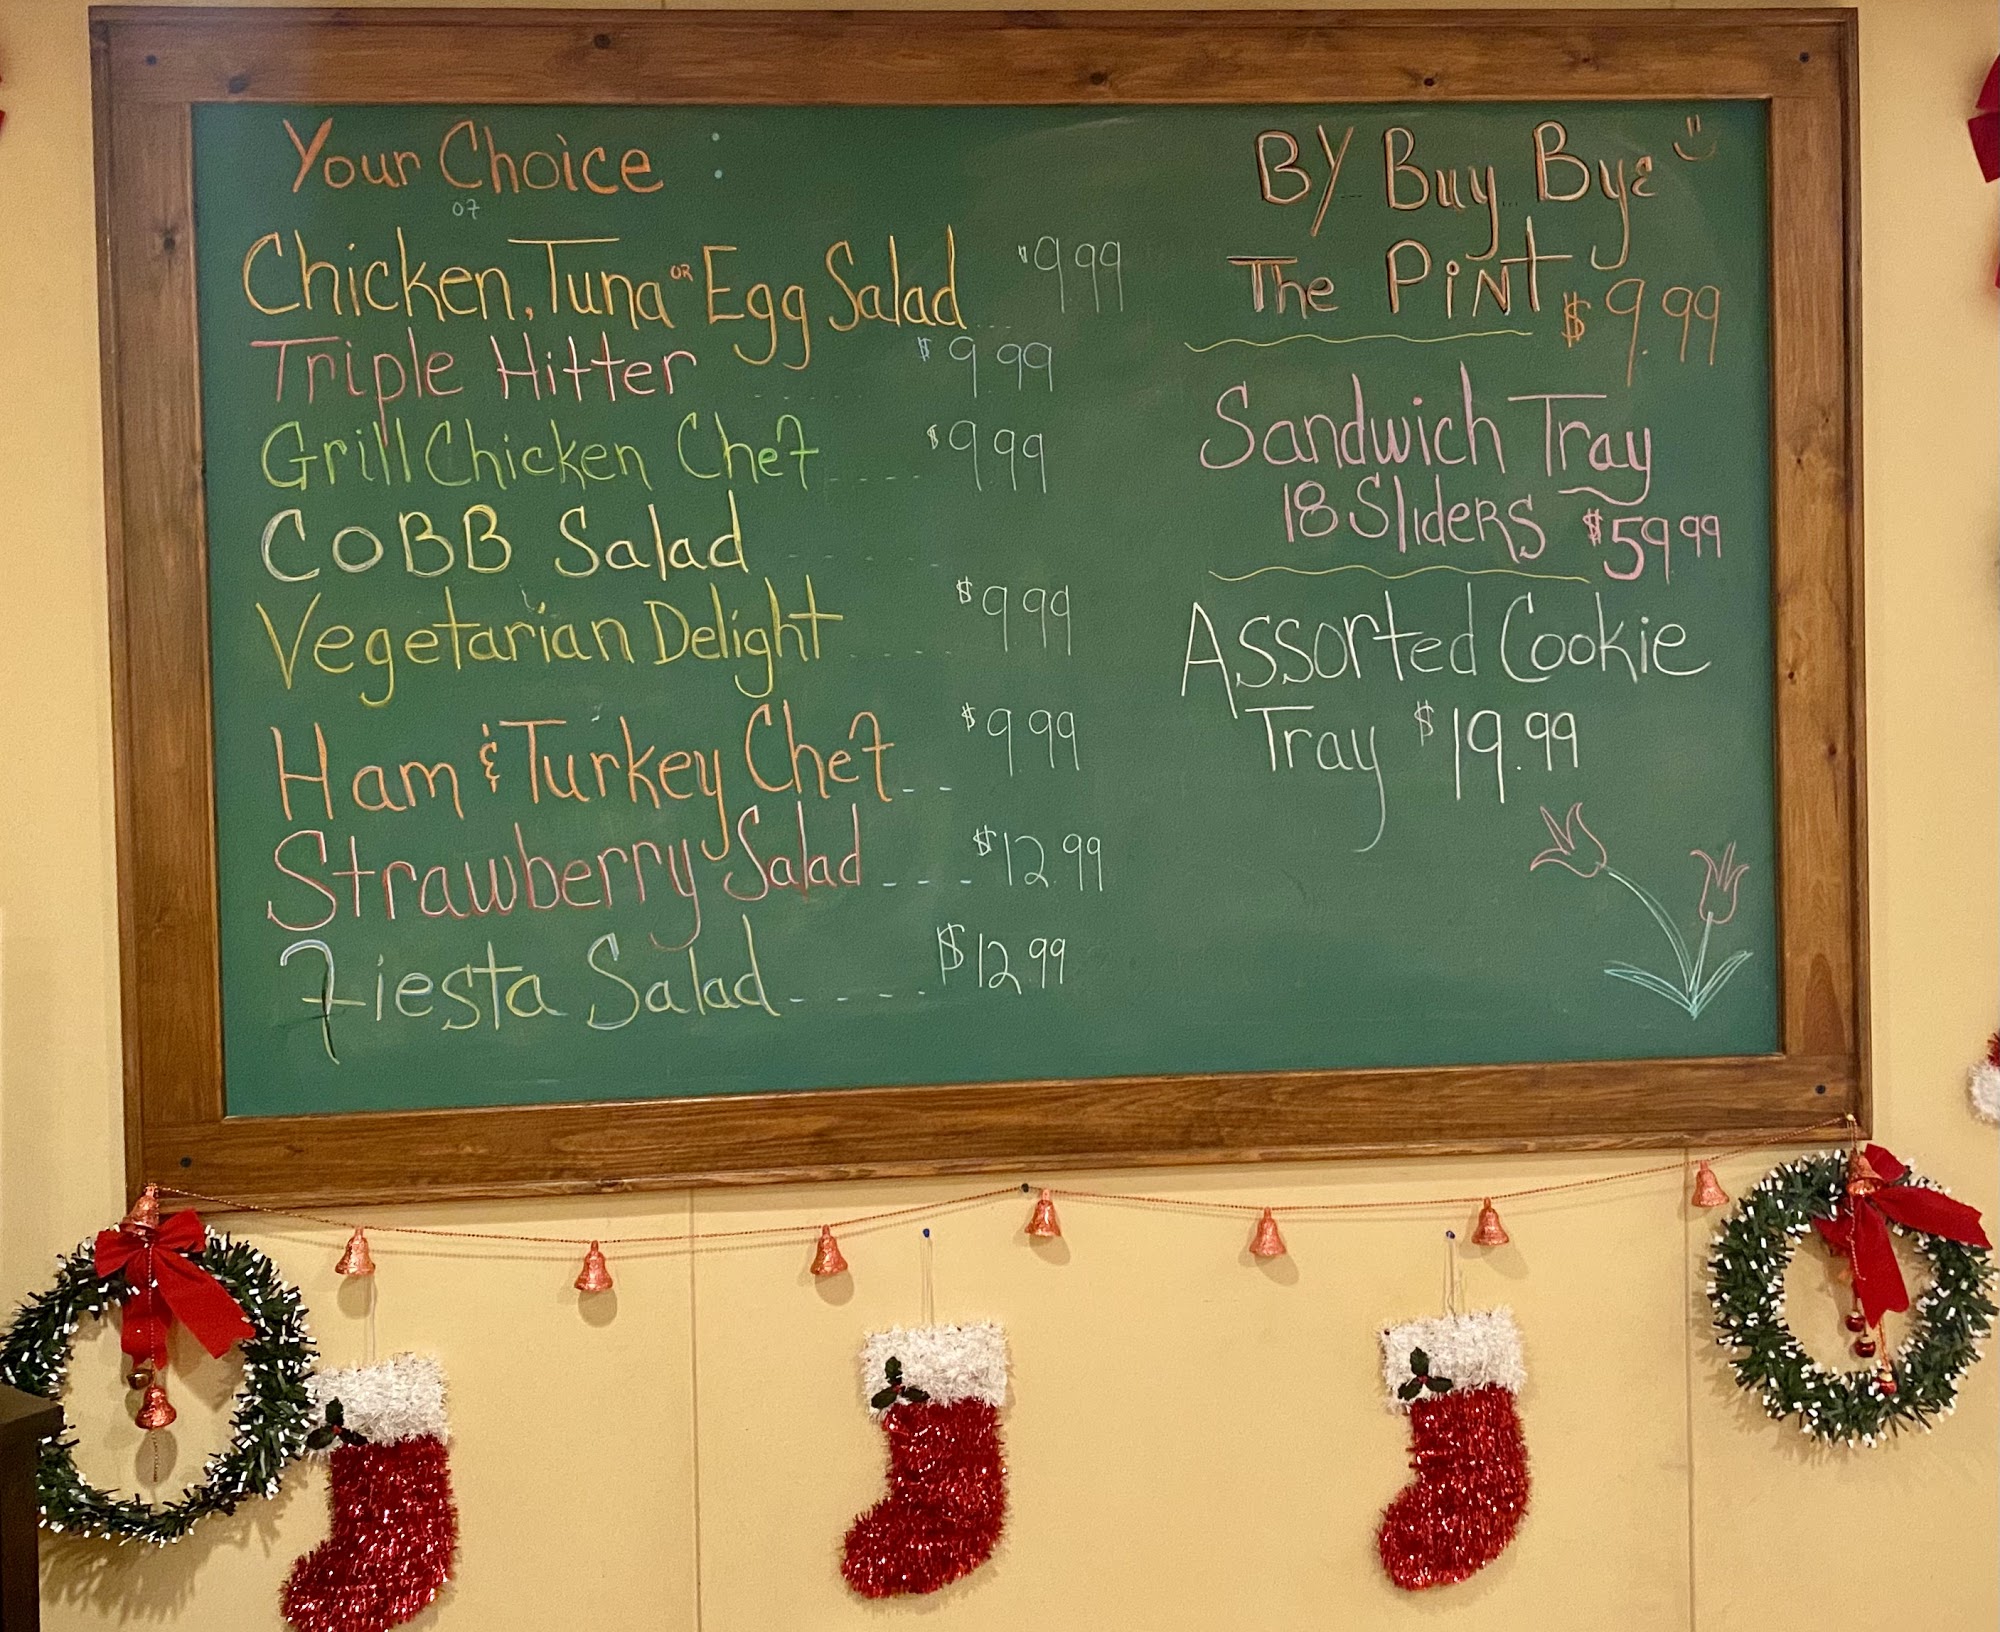 Your Choice :
of
Chicken, Tuna or Egg Salad ... $9.99
Triple Hitter ..... $9.99
Grill Chicken Chef .... $9.99
COBB Salad ......
Vegetarian Delight ..... $9.99
Ham & Turkey Chef .. $9.99
Strawberry Salad --- $12.99
Fiesta Salad ..... $12.99
BY Buy Bye
The PiNt $9.99
Sandwich Tray
18 Sliders $59.99
Assorted Cookie
Tray $19.99